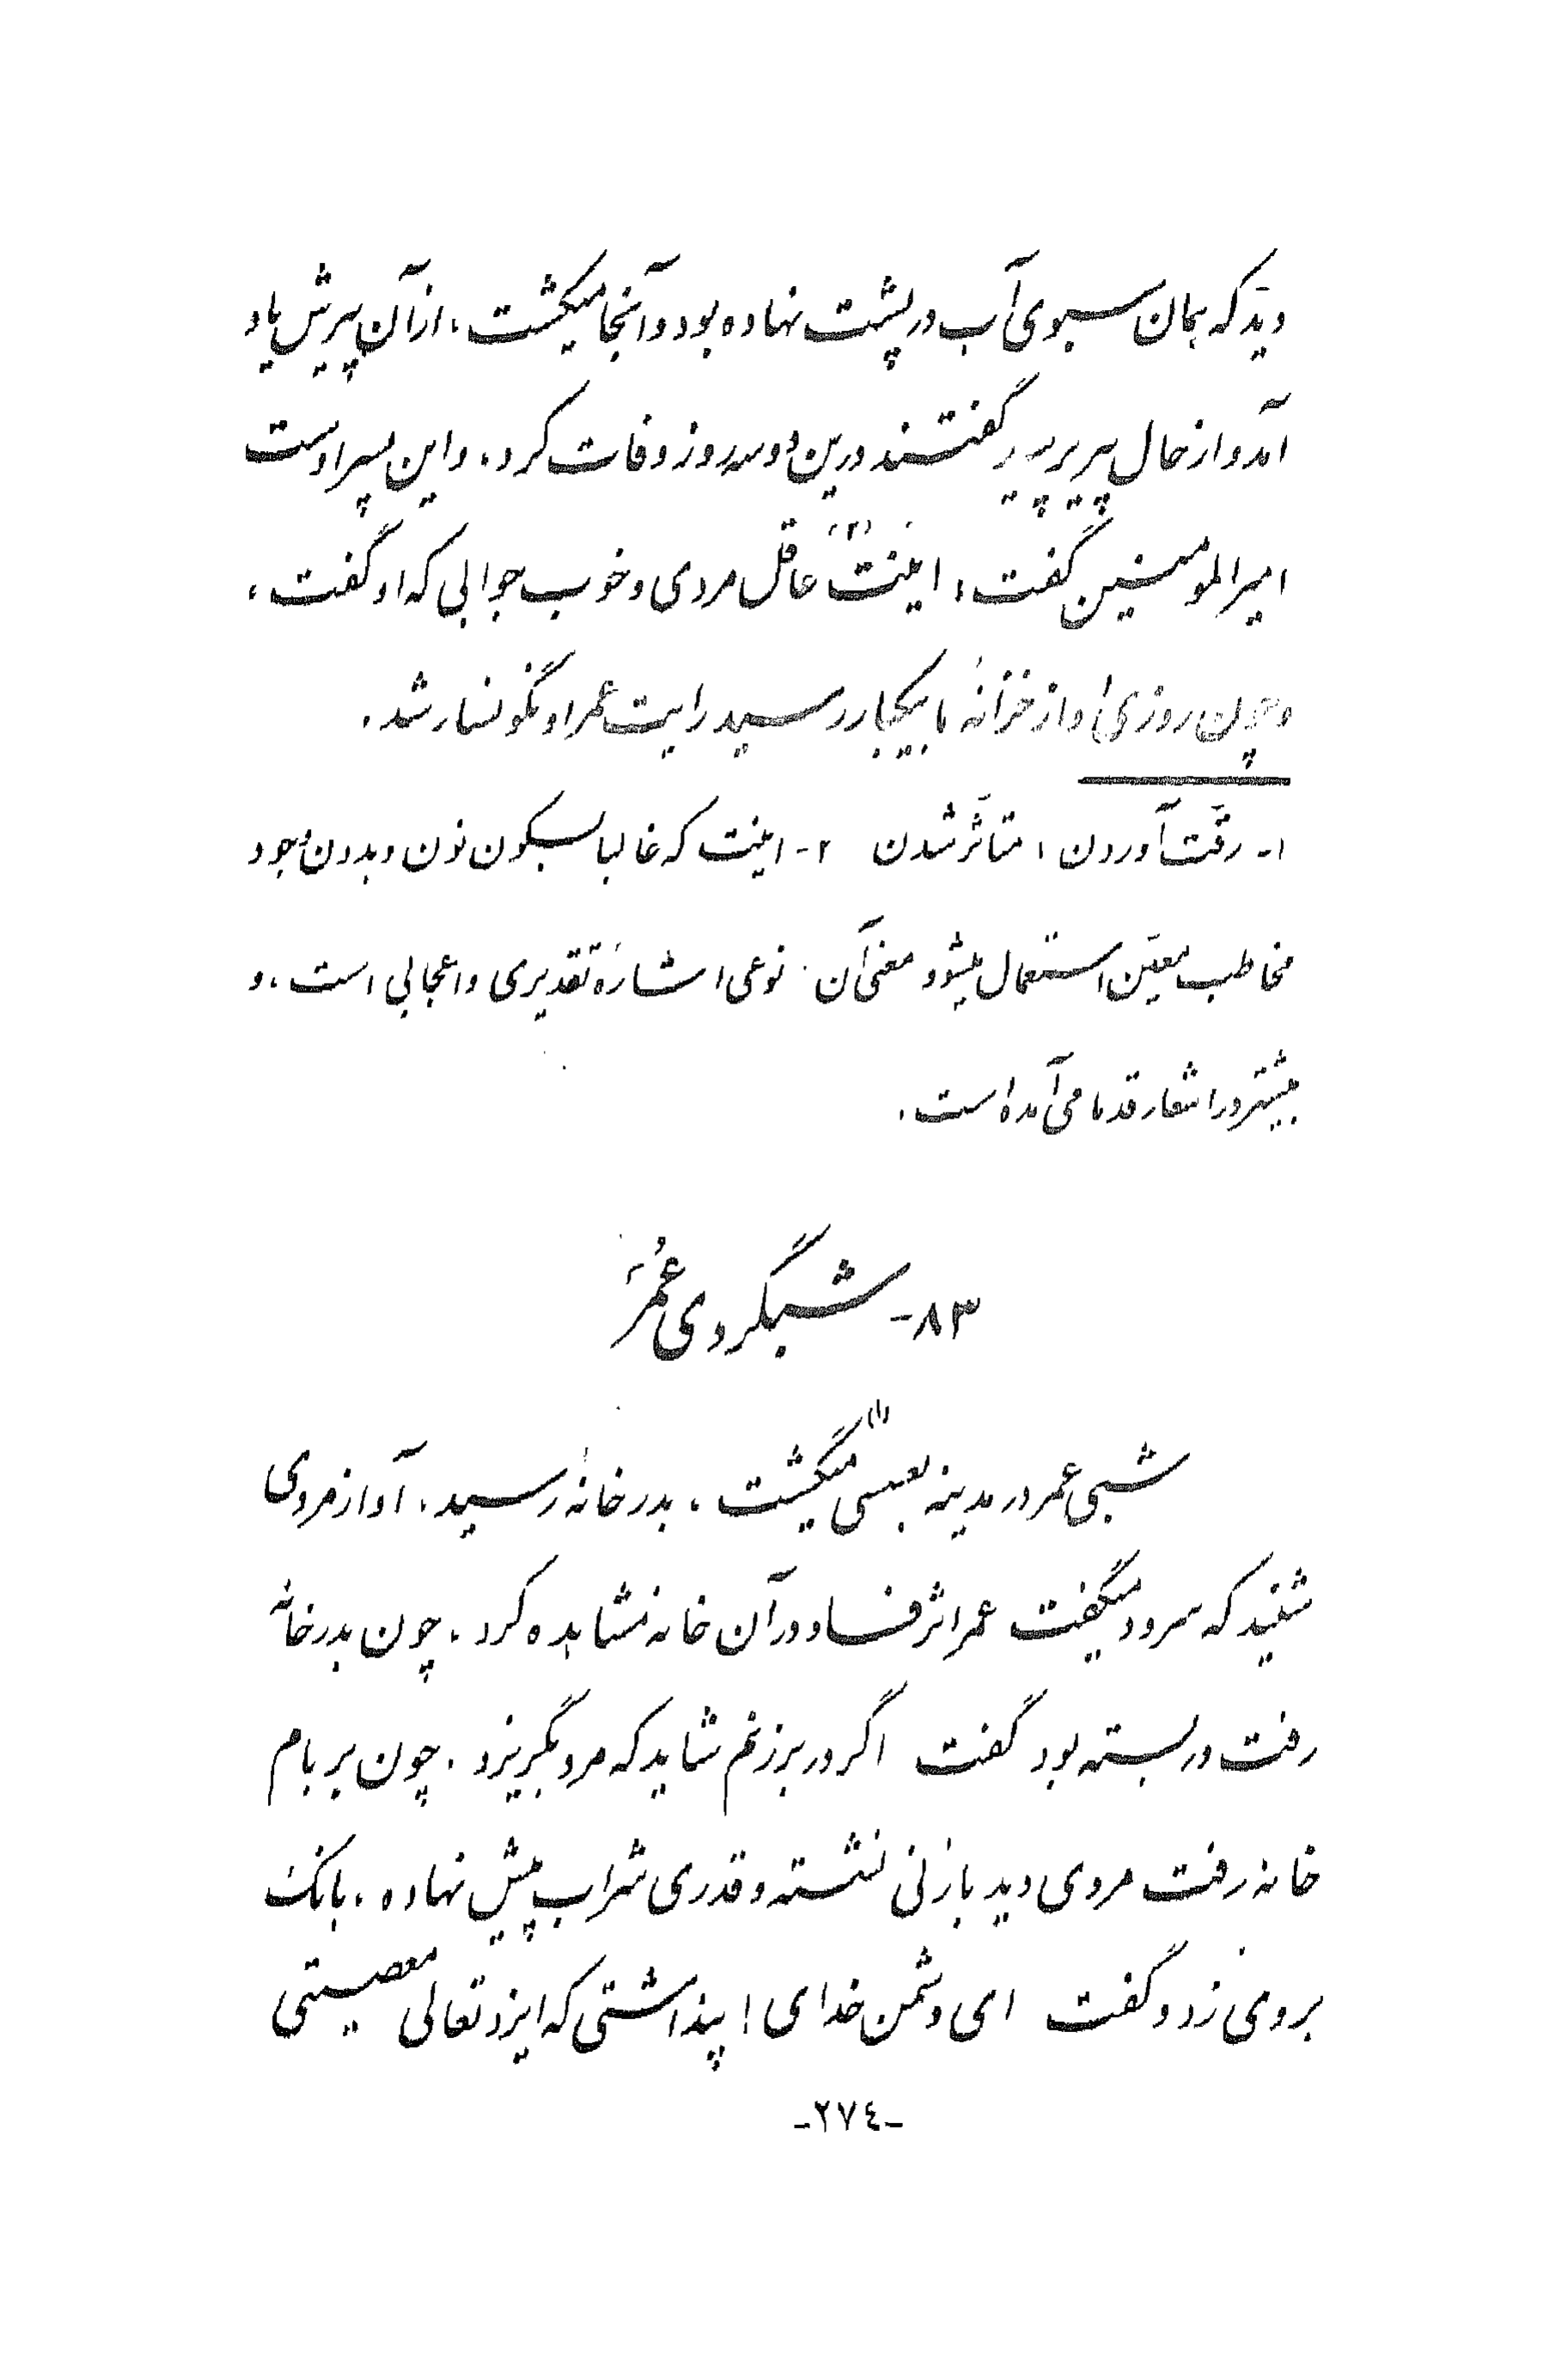 دید که همان سبوی آب در پشت نهاده بود و آنجا میگشت، از آن پیرش یاد
آمد و از حال پیر پرسید گفتند درین دو سه روز وفات کرد، و این پسر اوست
امیرالمومنین گفت: اینت (۲) عاقل مردی و خوب جوابی که او گفت،
و چون روزی او از خزانهٔ ما بیکبار رسید رایت عمر او نگونسار شد.
۱- رقّت آوردن: متأثّر شدن ۲- اینت که غالبا بسکون نون و بدون وجود
مخاطب معیّن استعمال میشود معنی آن نوعی اشارهٔ تقدیری و اعجابی است، و
بیشتر در اشعار قدما می آمده است.
۸۳- شبگردی عُمَر
شبی عمر در مدینه بعسی (۱) میگشت، بدر خانهٔ رسید، آواز مردی
شنید که سرود میگفت عمر اثر فساد در آن خانه مشاهده کرد، چون بدر خانه
رفت در بسته بود گفت اگر در بزنم شاید که مرد بگریزد، چون بر بام
خانه رفت مردی دید با زنی نشسته و قدری شراب پیش نهاده، بانگ
بر وی زد و گفت ای دشمن خدای! پنداشتی که ایزد تعالی معصیتی
-۲۷٤-